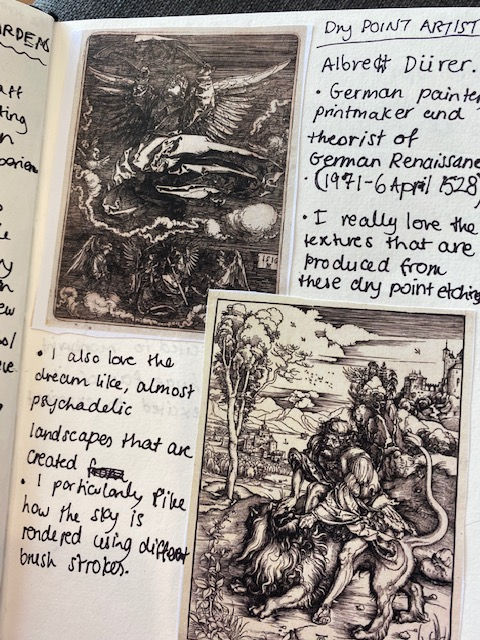 ARDENS
DRY POINT ARTIST
Albrect Dürer.
• German painter
printmaker and
theorist of
German Renaissance
• (1971-6 April 1528)
• I really love the
textures that are
produced from
these dry point etching
1516
• I also love the
dream like, almost
psychadelic
landscapes that are
created
• I particularly like
how the sky is
rendered using different
brush strokes.